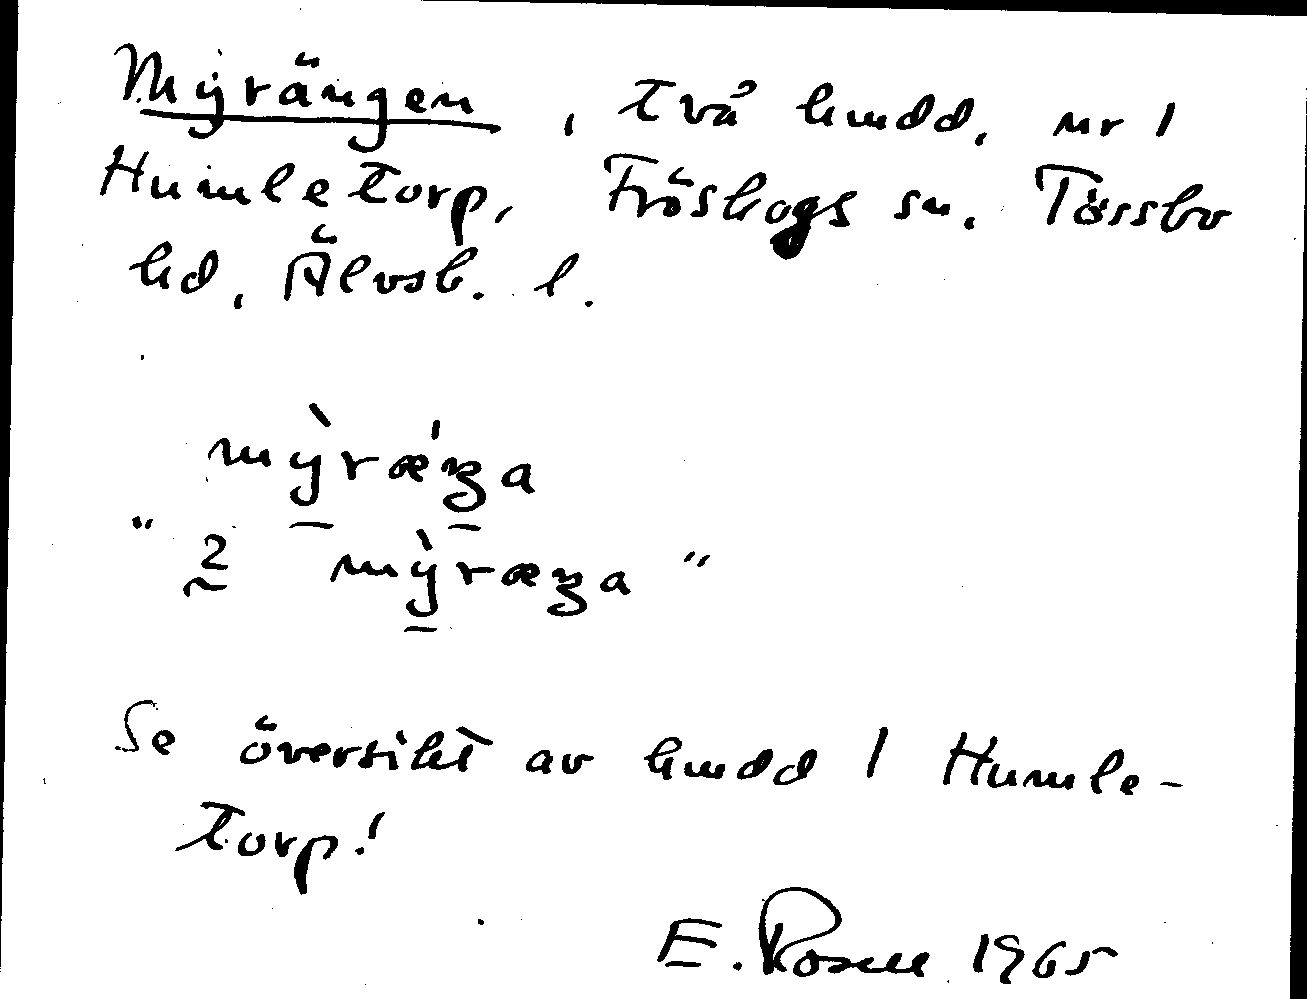 Myrängen, två hmdd, nr 1
Humletorp, Fröskogs sn. Tössbo
hd, Älvsb. l.
mỳræ̀ʒa
" 2 mỳræʒa "
Se översikt av hmdd 1 Humle-
torp!
E. Rosell 1965